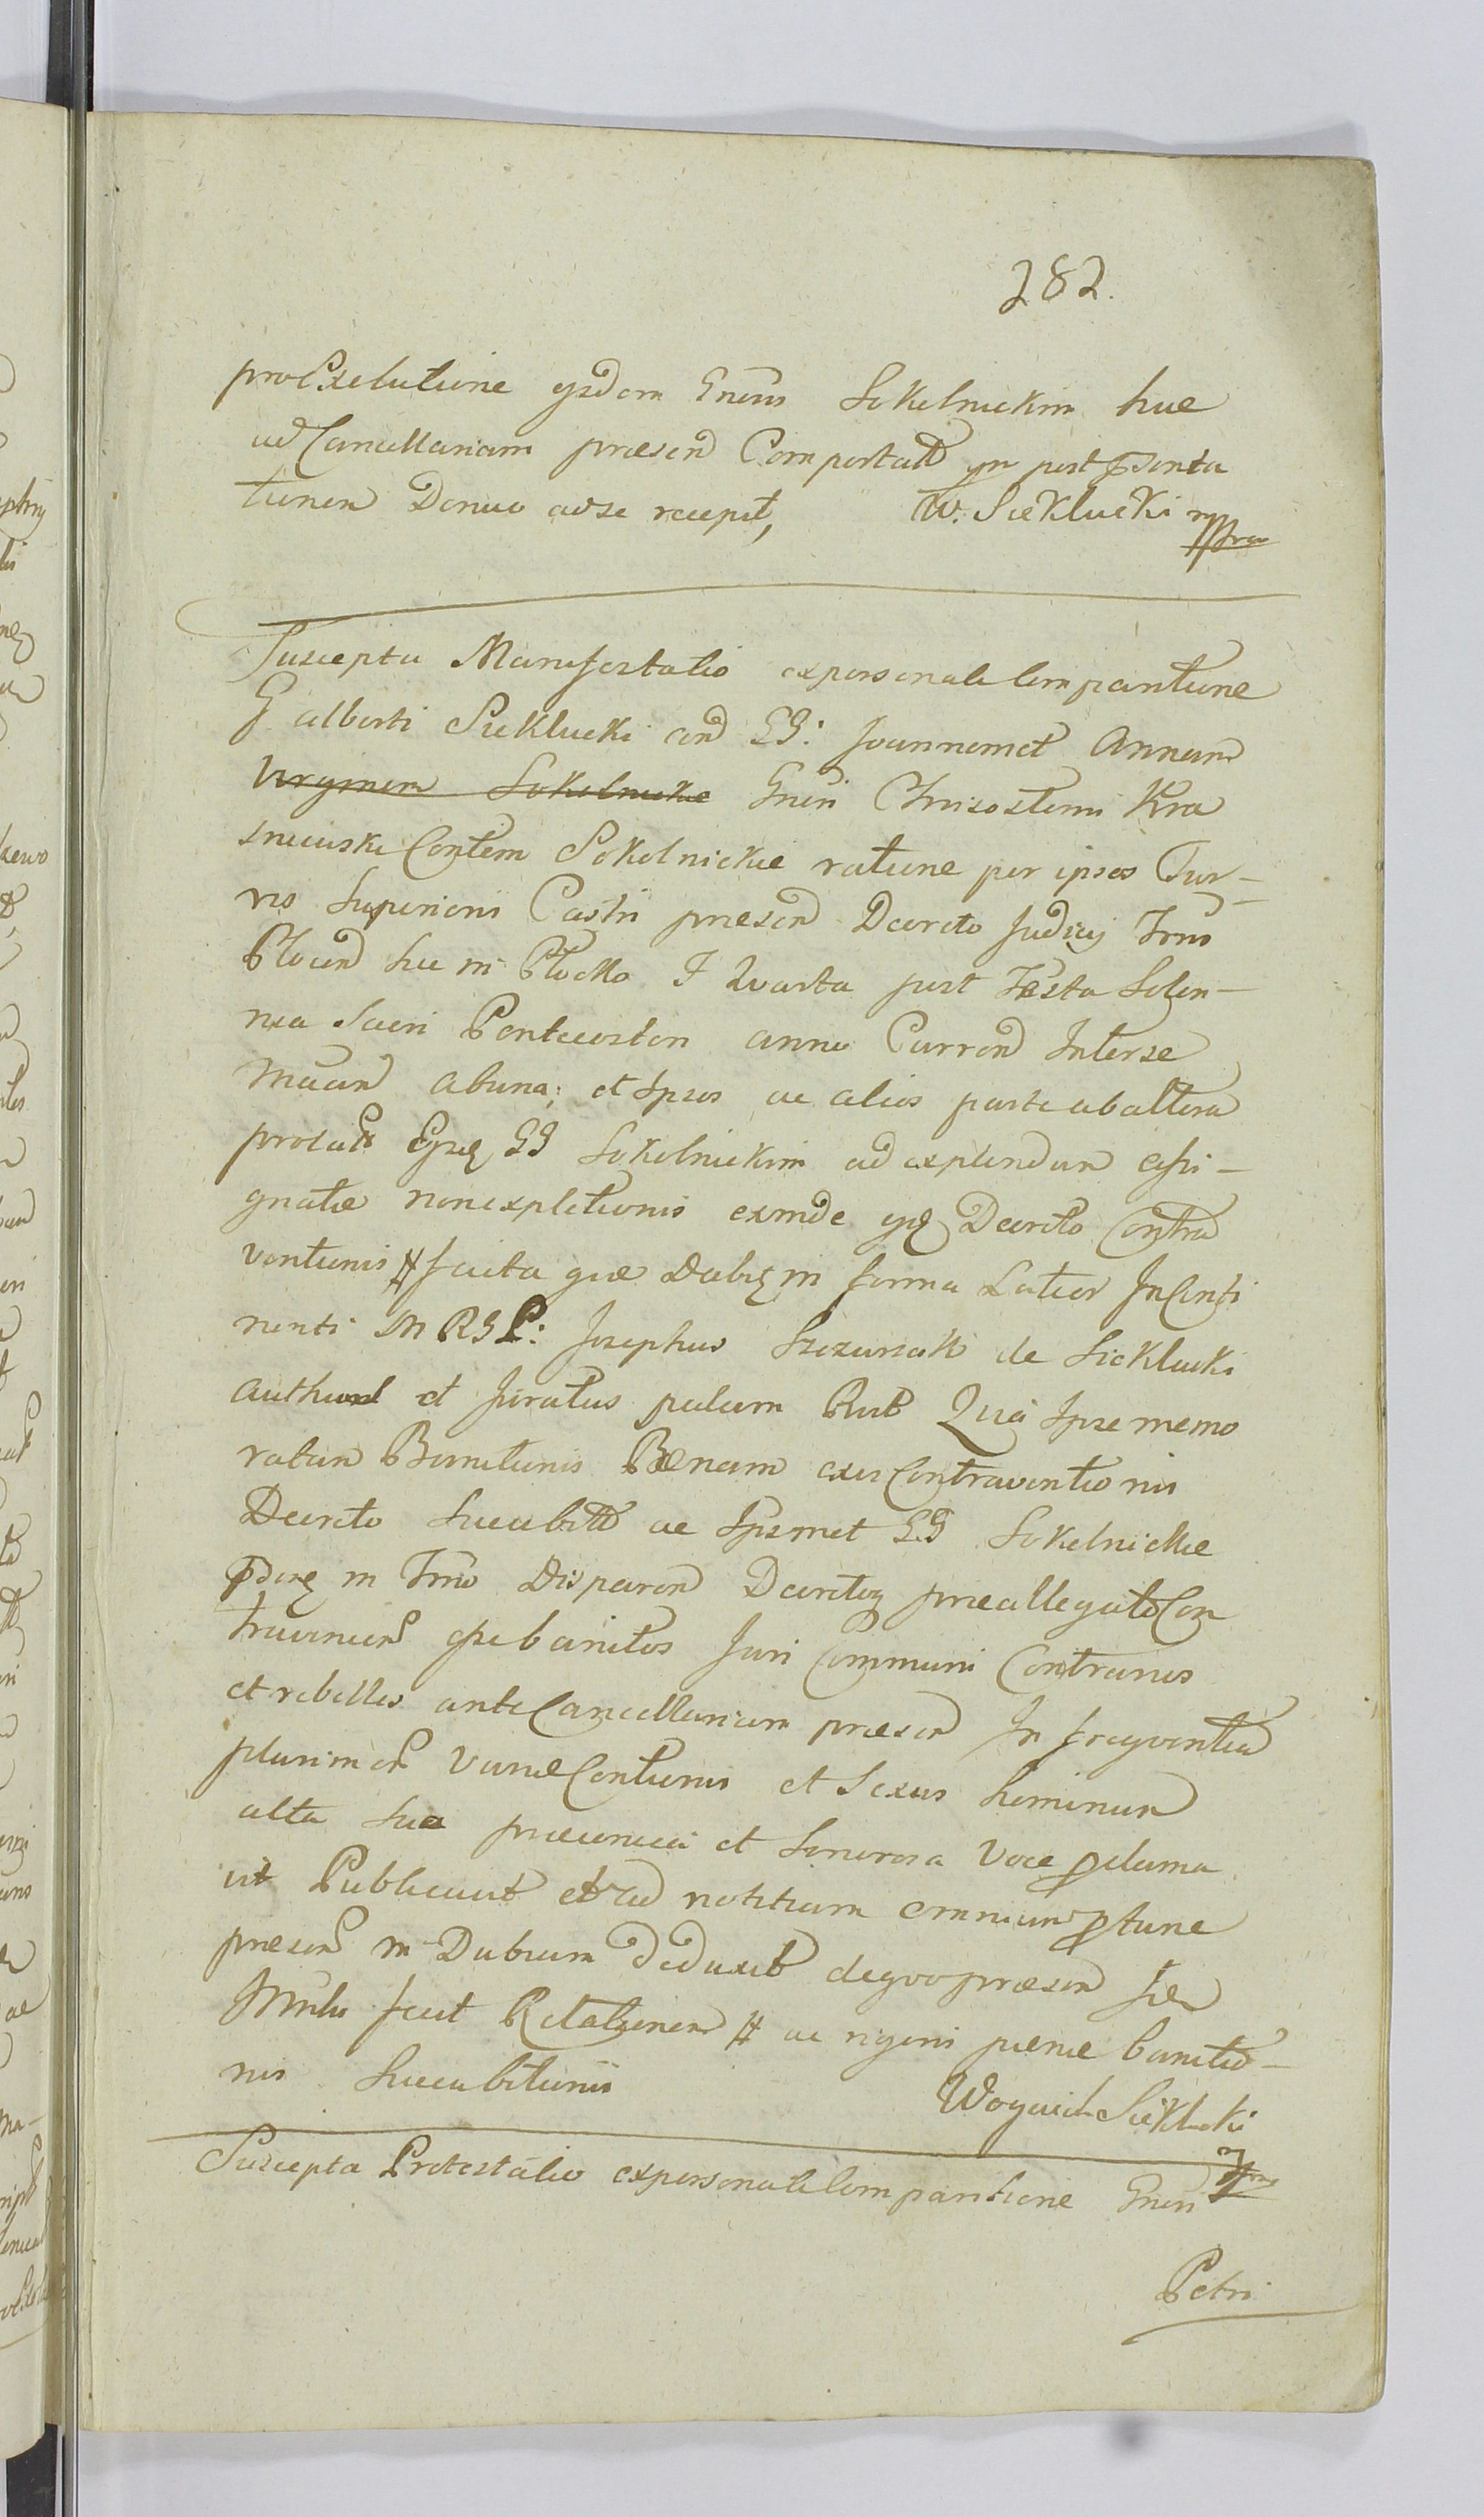 282.
pro Exelutione ejsdem Gnens Sokolnickim huc
ad Cancellariam præsen Comportatt ym post
tionem Denuo ad se recepit, W. Sieklucki mppra
Suscepta Manifestatio ex personali Comparitione
G alberti Sieklucki con GG: Joannem et Annam
Virginem Sokolnickie Gnen Chrisostomi Kra
snicuski Contem Sokolnickie ratione per ipsos Tur-
ris Superioris Castri præsen Decreto Judicij Trns
Plocen huc in Plocko F Quarta post Festa Solen-
nia Sacri Pentecosten anno Curren Interse
Mutuo ab una; et Ipsos ac alios parte ab altera
prolatt Ejsq GG Sokolnickim ad explendum assi-
gnatæ non expletionis exinde ejq Decreto Contra
ventionis # facta quæ dabiq in forma Latior In Conti
nenti M RGP: Josephus de Sieklucki
authent et Juratus palam Rect Quia Ipse memo
ratam Banitionis Pænam ex Contraventionis
Decreto Succubitt ac Ipsmet GG Sokolnickie
in Trno Disparen Decretoq præallegato Con
travenien banitos Juri Communi Contrarios
et rebelles ante Cancellariam præsen In frequentia
plurimor Variæ Contionis et Sexus hominum
alta sua præconica et Sonorosa Voce proclama
vit Publicavit et ad notitiam omnium protunc
præsen in Dubium deduxit de quo præsen
fecit Relationem # ac rigoris pænæ banitio-
nis Succubitionis Woyciech Sieklucki
Suscepta Protestatio ex personali Comparitione Gnen mppra
Petri